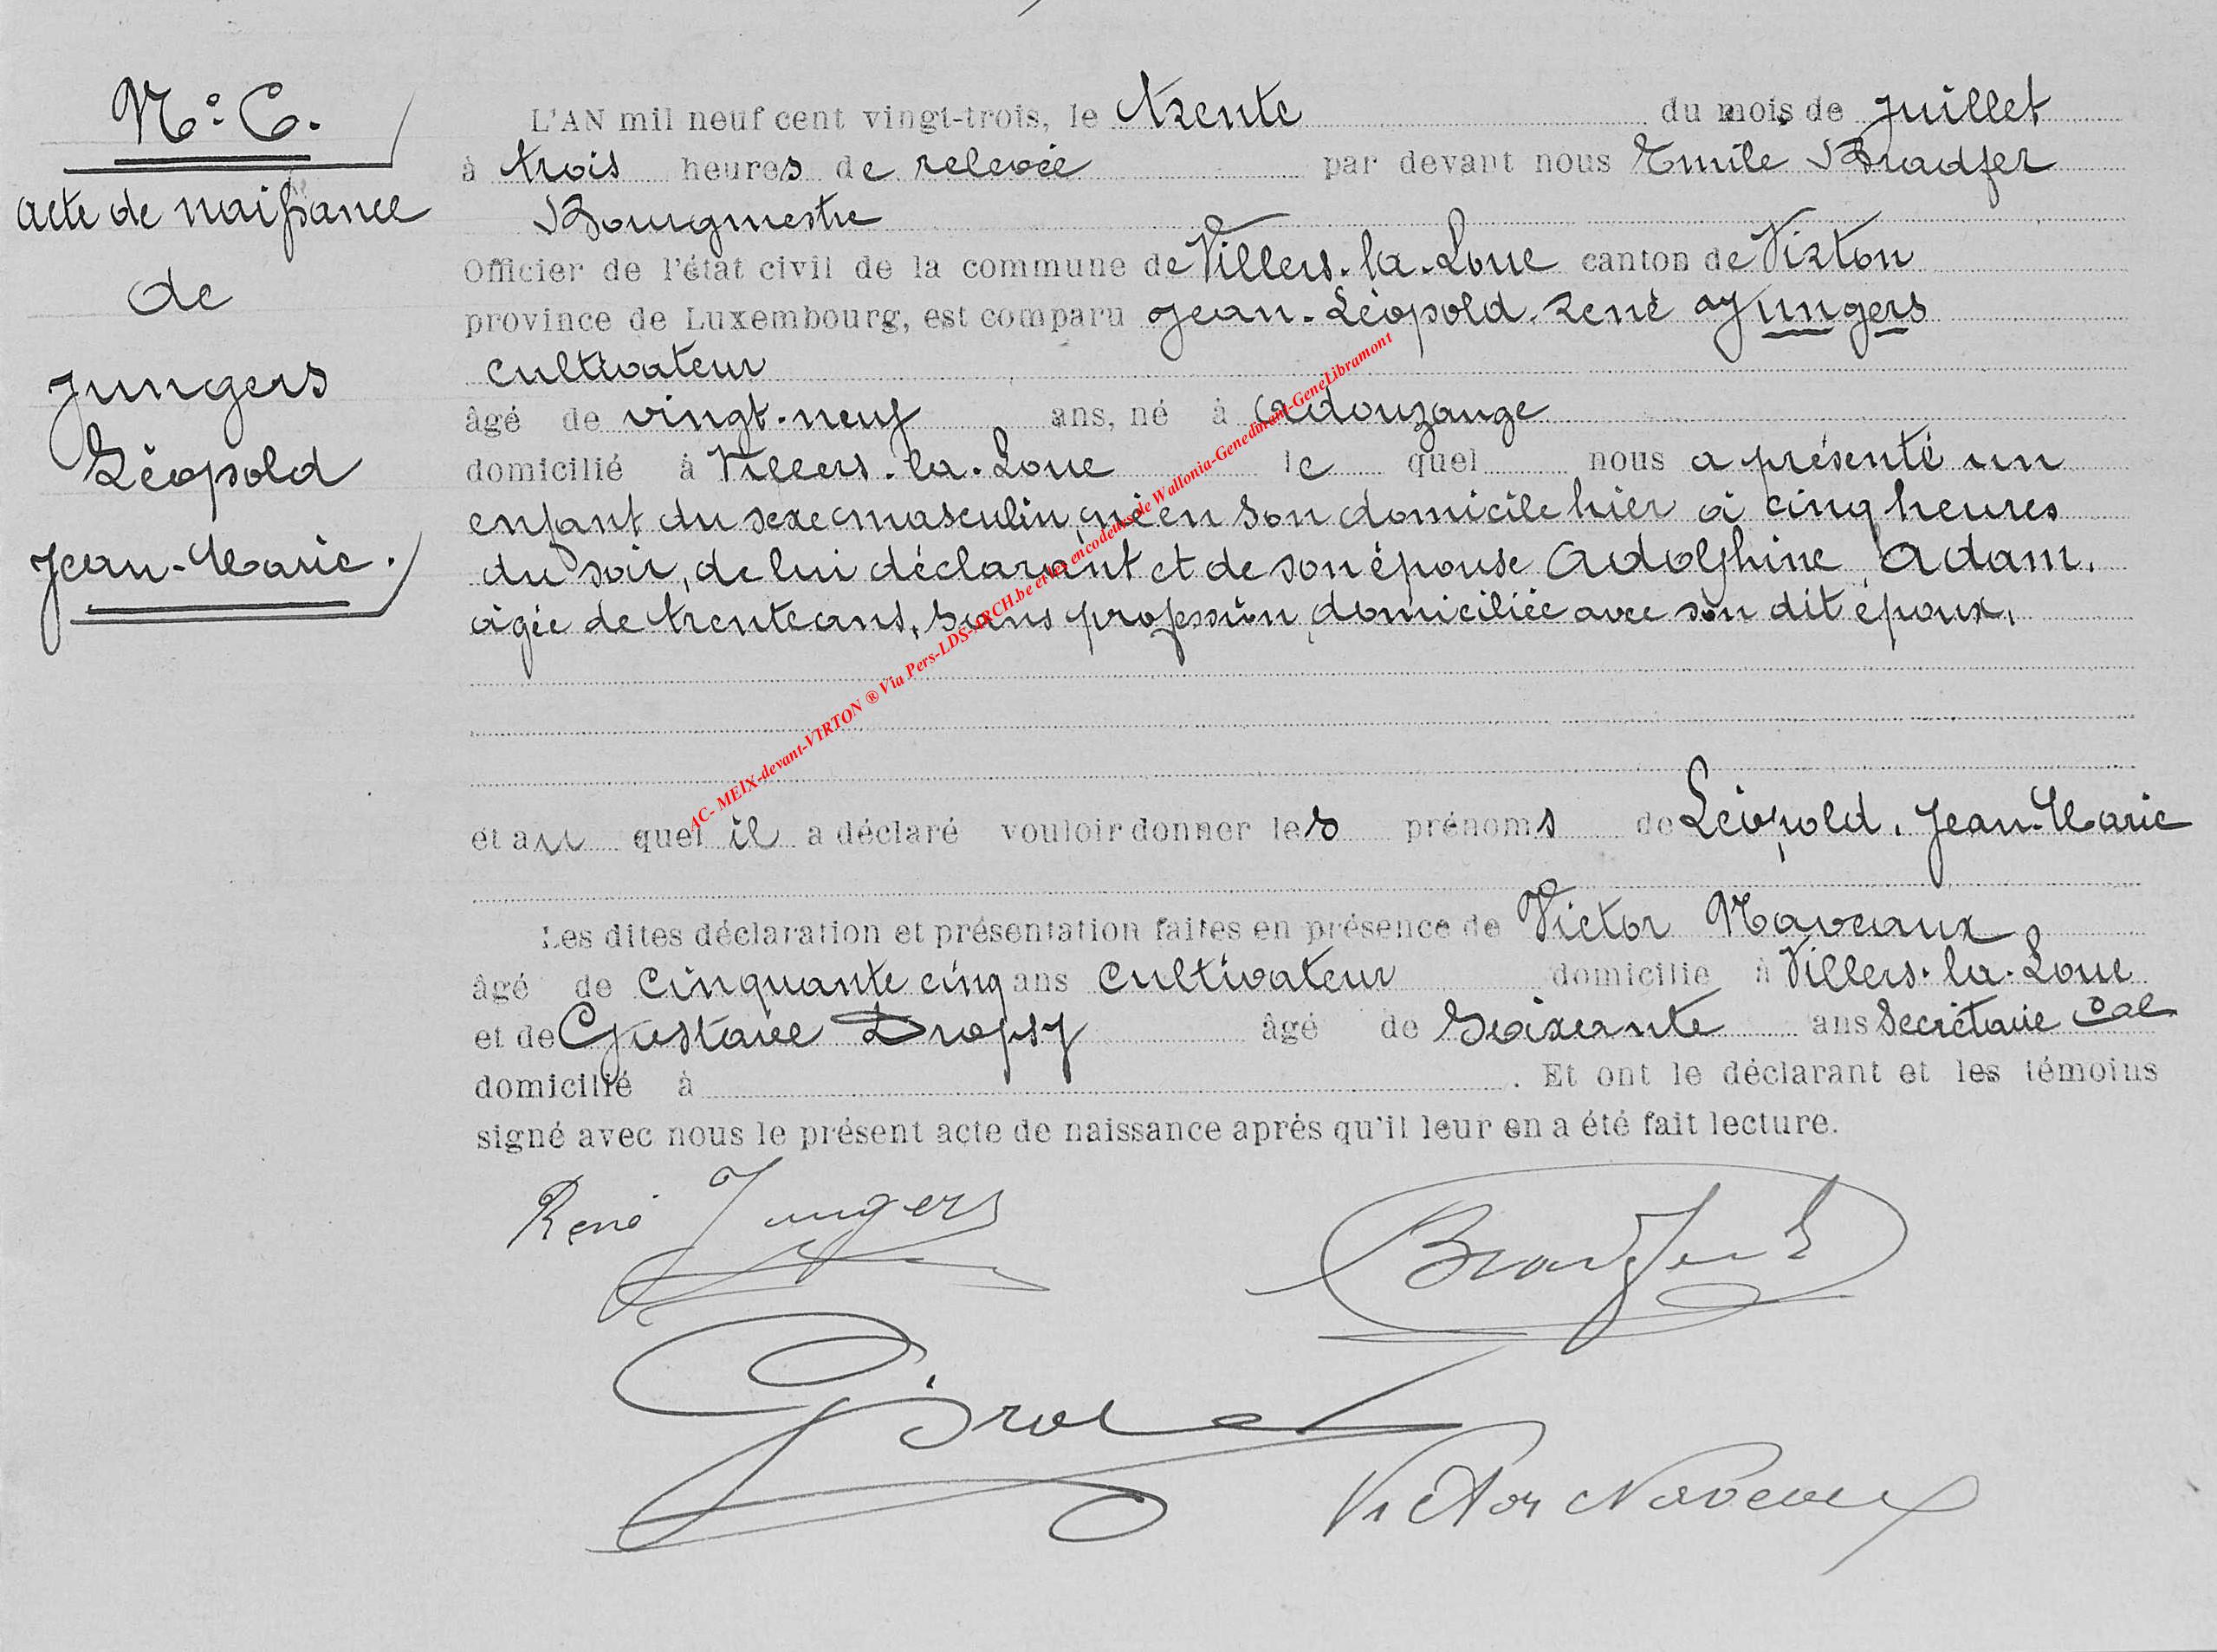 N° 6.
acte de naissance
de
Jungers
Léopold
Jean-Marie.
L'AN mil neuf cent vingt-trois, le trente du mois de Juillet
à trois heures de relevée par devant nous Emile Bradfer
Bourgmestre
Officier de l'état civil de la commune de Villers-la-Loue canton de Virton
province de Luxembourg, est comparu Jean-Léopold-René Jungers
cultivateur
âgé de vingt-neuf ans, né à
domicilié à Villers-la-Loue le quel nous a présenté un
enfant du sexe masculin, né en son domicile hier à cinq heures
du soir, de lui déclarant et de son épouse Adolphine Adam.
agée de trente ans, sans profession, domiciliée avec son dit époux.
et au quel il a déclaré vouloir donner les prénoms de Léopold. Jean-Marie
Les dites déclaration et présentation faites en présence de Victor Naveaux
âgé de cinquante cinq ans cultivateur domicilié à Villers-la-Loue
et de Gustave Dropsy âgé de soixante ans Secrétaire cal
domicilié à . Et ont le déclarant et les témoins
signé avec nous le présent acte de naissance après qu'il leur en a été fait lecture.
René Jungers
Bradfer
Victor Naveaux
AC- MEIX-devant-VIRTON ® Via Pers-LDS-ARCH.be et les encodeurs de Wallonia-Genedinant-GeneLibramont